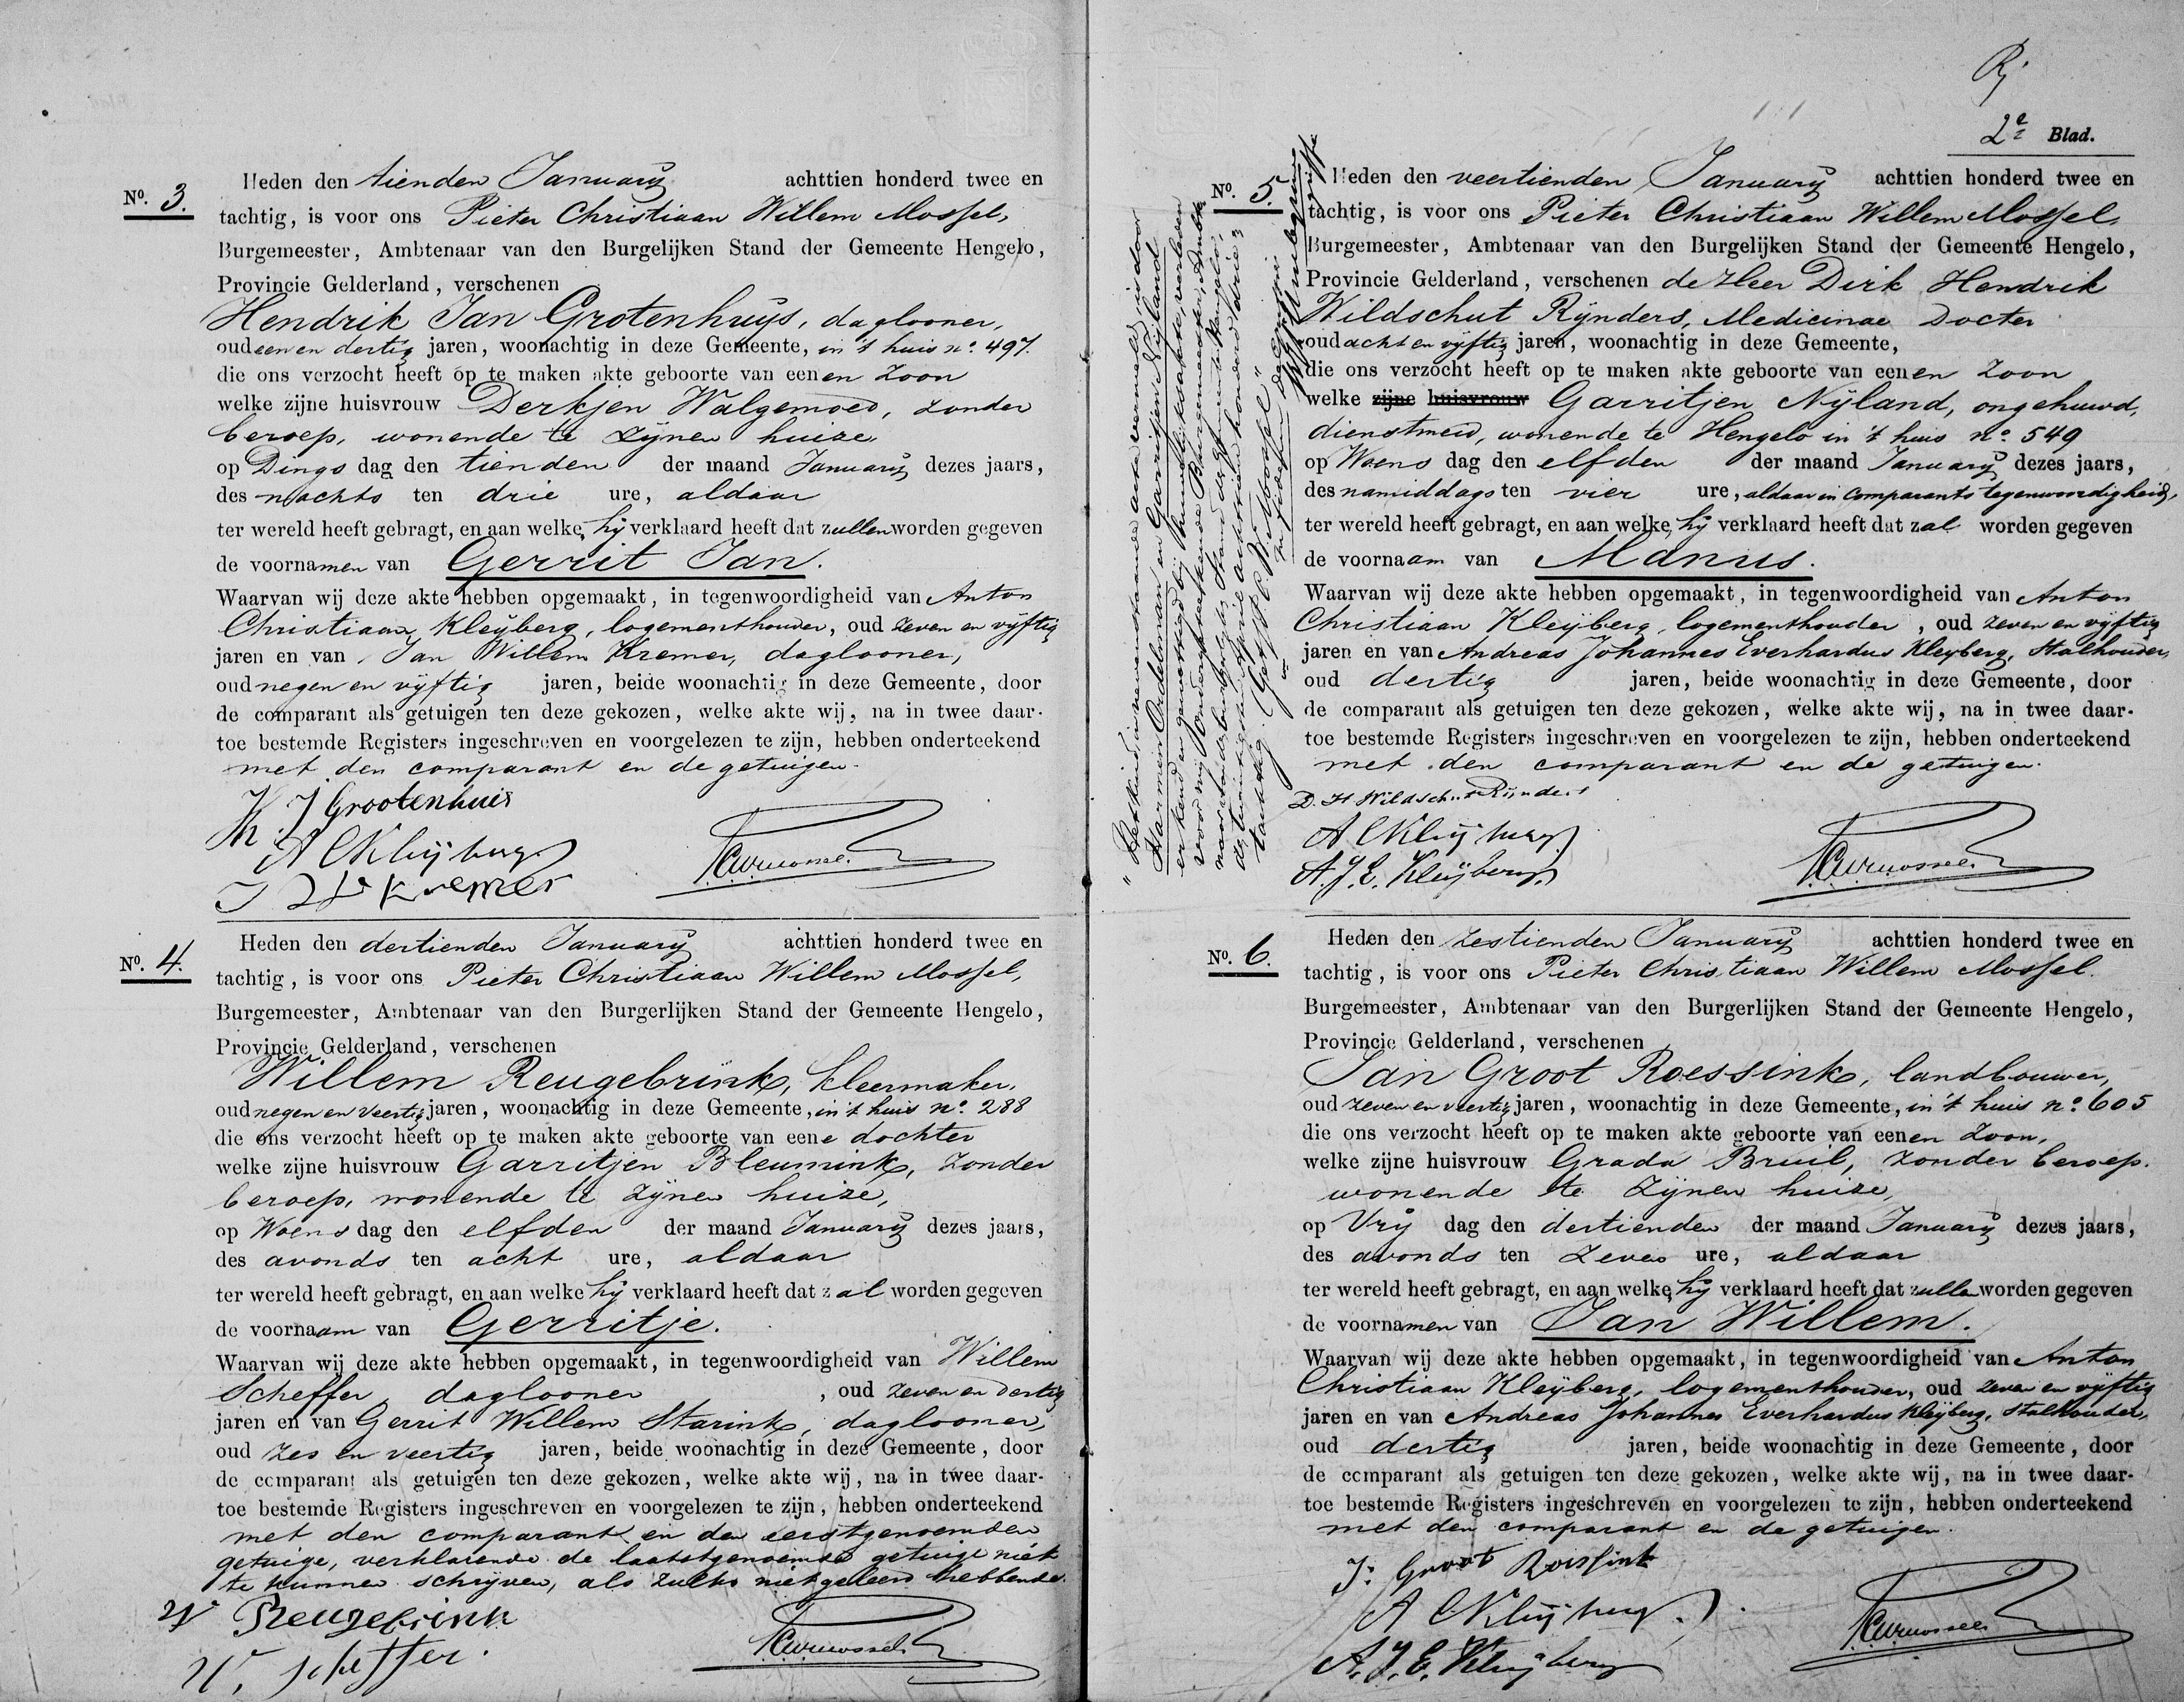 No. 3.
Heden den tienden January achttien honderd twee en
tachtig, is voor ons Pieter Christiaan Willem Mossel,
Burgemeester, Ambtenaar van den Burgelijken Stand der Gemeente Hengelo,
Provincie Gelderland, verschenen
Hendrik Jan Grotenhuys, daglooner,
oud een en dertig jaren, woonachtig in deze Gemeente, in 't huis no. 497.
die ons verzocht heeft op te maken akte geboorte van eenen zoon
welke zijne huisvrouw Derkjen Walgemoed, zonder
beroep, wonende te zijnen huize,
op Dings dag den tienden der maand January dezes jaars,
des nachts ten drie ure, aldaar
ter wereld heeft gebragt, en aan welke hij verklaard heeft dat zullen worden gegeven
de voornamen van Gerrit Jan.
Waarvan wij deze akte hebben opgemaakt, in tegenwoordigheid van Anton
Christiaan Kleyberg, logementhouder, oud zeven en vijftig
jaren en van Jan Willem Kremer, daglooner,
oud negen en vijftig jaren, beide woonachtig in deze Gemeente, door
de comparant als getuigen ten deze gekozen, welke akte wij, na in twee daar-
toe bestemde Registers ingeschreven en voorgelezen te zijn, hebben onderteekend
met den comparant en de getuigen.
H J Grootenhuis
A C Kleyberg
J W Kremer
PCWMossel
No. 4.
Heden den dertienden January achttien honderd twee en
tachtig, is voor ons Pieter Christiaan Willem Mossel,
Burgemeester, Ambtenaar van den Burgerlijken Stand der Gemeente Hengelo,
Provincie Gelderland, verschenen
Willem Reugebrink, kleermaker,
oud negen en veertig jaren, woonachtig in deze Gemeente, in 't huis no. 288
die ons verzocht heeft op te maken akte geboorte van eene dochter
welke zijne huisvrouw Garritjen Bleumink, zonder
beroep, wonende te zijnen huize,
op Woens dag den elfden der maand January dezes jaars,
des avonds ten acht ure, aldaar
ter wereld heeft gebragt, en aan welke hij verklaard heeft dat zal worden gegeven
de voornaam van Gerritje.
Waarvan wij deze akte hebben opgemaakt, in tegenwoordigheid van Willem
Scheffer, daglooner, oud zeven en dertig
jaren en van Gerrit Willem Starink, daglooner,
oud zes en veertig jaren, beide woonachtig in deze Gemeente, door
de comparant als getuigen ten deze gekozen, welke akte wij, na in twee daar-
toe bestemde Registers ingeschreven en voorgelezen te zijn, hebben onderteekend
met den comparant en den eerstgenoemden
getuige, verklarende de laatstgenoemde getuige niet
te kunnen schrijven, als zulks niet geleerd hebbende.
W Reugebrink
W. Scheffer.
PCWMossel
2e Blad.
No. 5.
Heden den veertienden January achttien honderd twee en
tachtig, is voor ons Pieter Christiaan Willem Mossel,
Burgemeester, Ambtenaar van den Burgelijken Stand der Gemeente Hengelo,
Provincie Gelderland, verschenen de Heer Dirk Hendrik
Wildschut Rijnders, Medicinae Docter
oud acht en vijftig jaren, woonachtig in deze Gemeente,
die ons verzocht heeft op te maken akte geboorte van eenen zoon
welke zijne huisvrouw Garritjen Nijland, ongehuwd,
dienstmeid, wonende te Hengelo in 't huis no. 549
op Woens dag den elfden der maand January dezes jaars,
des namiddags ten vier ure, aldaar in comparants tegenwoordigheid,
ter wereld heeft gebragt, en aan welke hij verklaard heeft dat zal worden gegeven
de voornaam van Manus.
Waarvan wij deze akte hebben opgemaakt, in tegenwoordigheid van Anton
Christiaan Kleyberg, logementhouder, oud zeven en vijftig
jaren en van Andreas Johannes Everhardus Kleyberg, Stalhouder,
oud dertig jaren, beide woonachtig in deze Gemeente, door
de comparant als getuigen ten deze gekozen, welke akte wij, na in twee daar-
toe bestemde Registers ingeschreven en voorgelezen te zijn, hebben onderteekend
met den comparant en de getuigen.
D. H Wildschut Rijnders
A C Kleyberg
A. J. E. Kleyberg
PCWMossel
"Het kind in nevenstaande acte vermeld, is door
Harmen Addelman en Garritjen Nijland
erkend en gewettigd bij huwelijksakte, verleden
voor mij ondergeteekende Burgemeester, Ambte-
naar van den burgerlijken Stand der Gemeente Hengelo,
achttien honderd drie
tachtig. (Get.) P. C. W. Mossel"
No. 6.
Heden den zestienden January achttien honderd twee en
tachtig, is voor ons Pieter Christiaan Willem Mossel.
Burgemeester, Ambtenaar van den Burgerlijken Stand der Gemeente Hengelo,
Provincie Gelderland, verschenen
Jan Groot Roessink, landbouwer,
oud zeven en veertig jaren, woonachtig in deze Gemeente, in 't huis no. 605
die ons verzocht heeft op te maken akte geboorte van eenen zoon,
welke zijne huisvrouw Grada Bruil, zonder beroep.
wonende te zijnen huize,
op Vrij dag den dertienden der maand January dezes jaars,
des avonds ten zeven ure, aldaar
ter wereld heeft gebragt, en aan welke hij verklaard heeft dat zullen worden gegeven
de voornamen van Jan Willem.
Waarvan wij deze akte hebben opgemaakt, in tegenwoordigheid van Anton
Christiaan Kleyberg, logementhouder, oud zeven en vijftig
jaren en van Andreas Johannes Everhardus Kleyberg, Stalhouder,
oud dertig jaren, beide woonachtig in deze Gemeente, door
de comparant als getuigen ten deze gekozen, welke akte wij, na in twee daar-
toe bestemde Registers ingeschreven en voorgelezen te zijn, hebben onderteekend
met den comparant en de getuigen.
J: Groot Roessink
A C Kleyberg
A. J. E. Kleyberg
PCWMossel